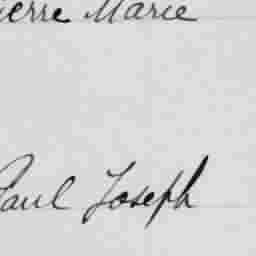 ierre Marie
Paul Joseph